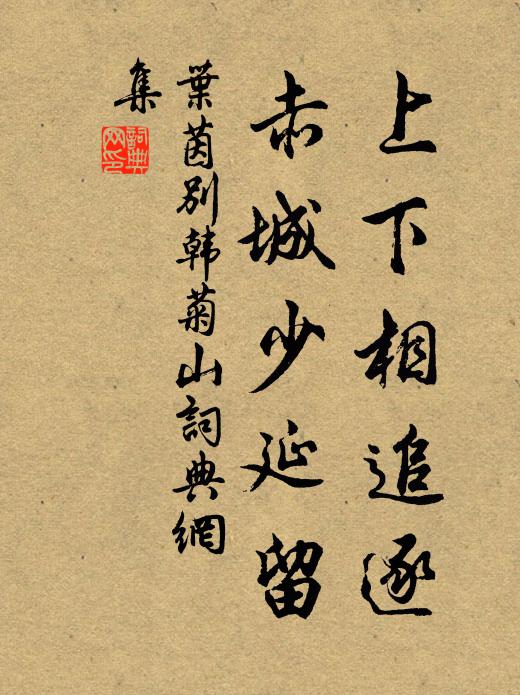 上下相追逐
赤城少延留
葉茵别韩菊山詞典網
集
詞典
网印